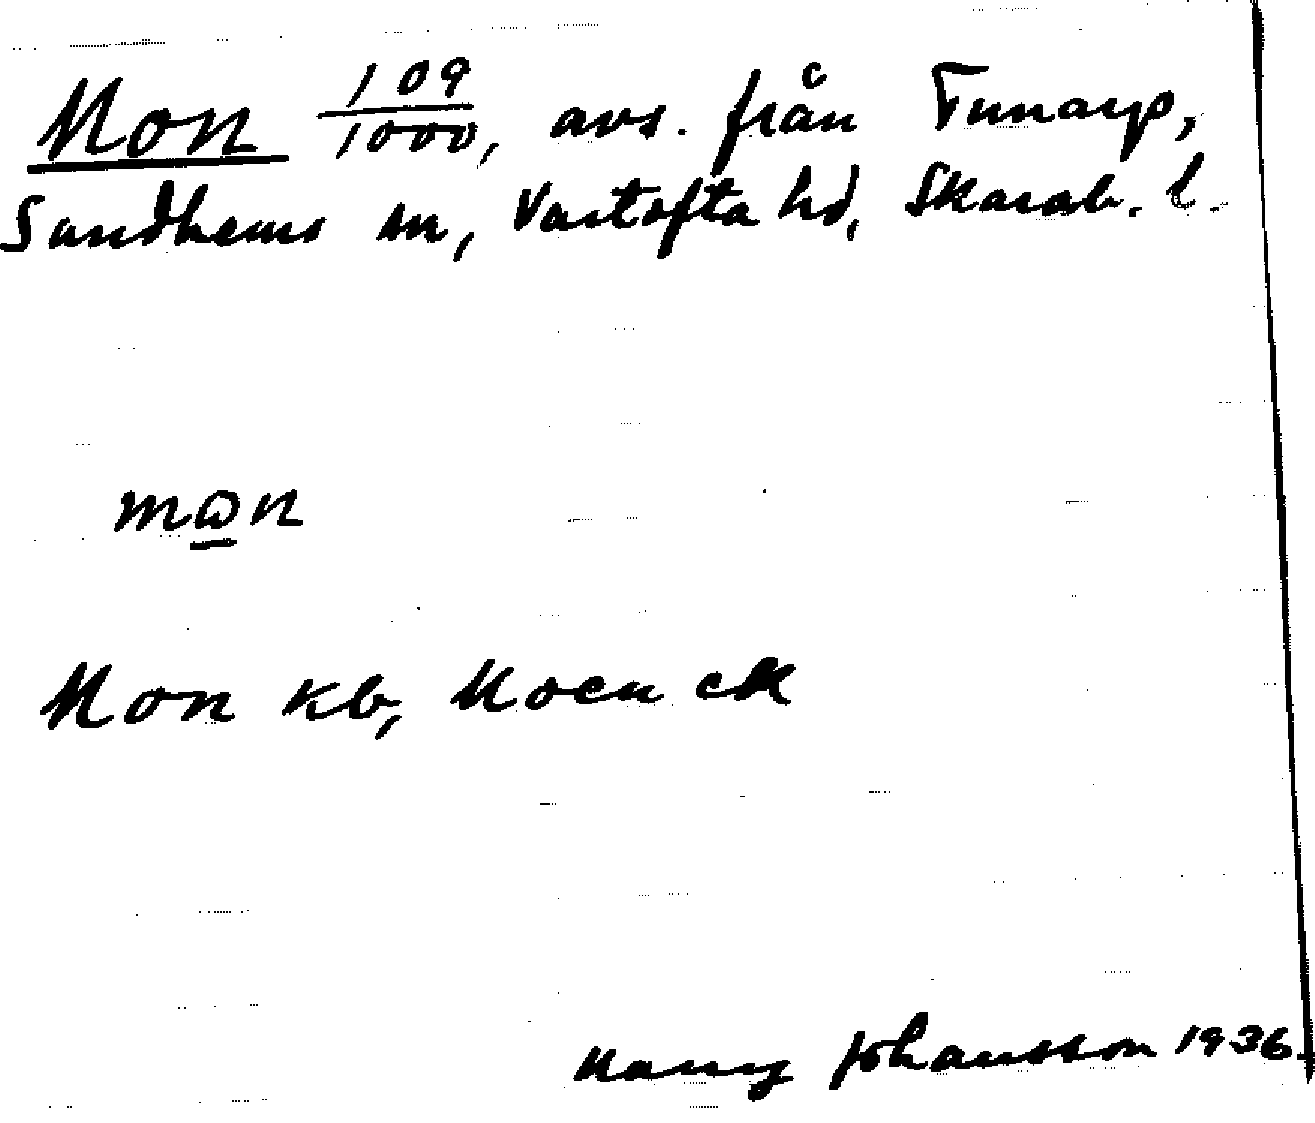 Mon 109/1000, avs. från Tunarp,
Sandhems sn, Vartofta hd, Skarab. l.
mon
Mon kb, Moen ck
Harry Johansson 1936.